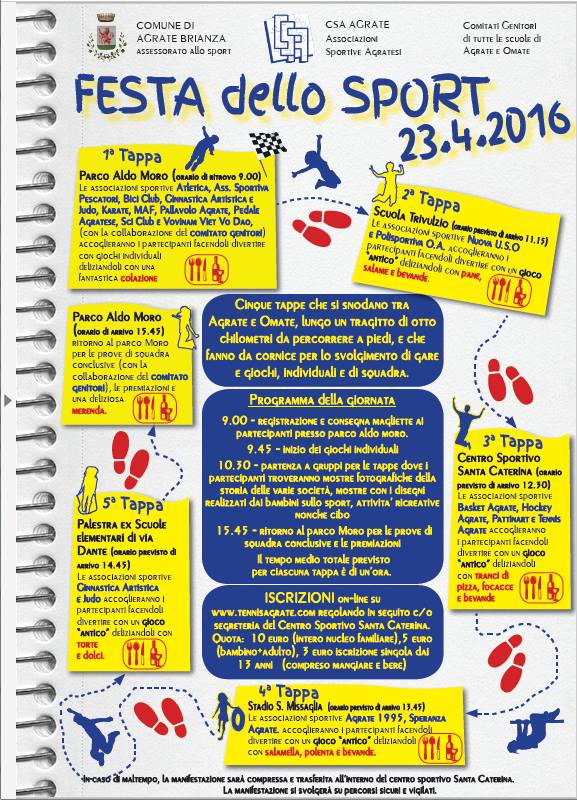 COMUNE DI
AGRATE BRIANZA
ASSESSORATO ALLO SPORT
CSA AGRATE
ASSOCIAZIONI
SPORTIVE AGRATESI
COMITATI GENITORI
DI TUTTE LE SCUOLE DI
AGRATE E OMATE
FESTA dello SPORT
23.4.2016
1ª Tappa
PARCO ALDO MORO (ORARIO DI RITROVO 9.00)
LE ASSOCIAZIONI SPORTIVE ATLETICA, ASS. SPORTIVA
PESCATORI, BICI CLUB, GINNASTICA ARTISTICA E
JUDO, KARATE, MAF, PALLAVOLO AGRATE, PEDALE
AGRATESE, SCI CLUB E VOVINAM VIET VO DAO,
(CON LA COLLABORAZIONE DEL COMITATO GENITORI)
ACCOGLIERANNO I PARTECIPANTI FACENDOLI DIVERTIRE
CON GIOCHI INDIVIDUALI
DELIZIANDOLI CON UNA
FANTASTICA COLAZIONE
2ª Tappa
SCUOLA TRIVULZIO (ORARIO PREVISTO DI ARRIVO 11.15)
LE ASSOCIAZIONI SPORTIVE NUOVA U.S.O
E POLISPORTIVA O.A. ACCOGLIERANNO I
PARTECIPANTI FACENDOLI DIVERTIRE CON UN GIOCO
"ANTICO" DELIZIANDOLI CON PANE,
SALAME E BEVANDE.
PARCO ALDO MORO
(ORARIO DI ARRIVO 15.45)
RITORNO AL PARCO MORO
PER LE PROVE DI SQUADRA
CONCLUSIVE (CON LA
COLLABORAZIONE DEL COMITATO
GENITORI), LE PREMIAZIONI E
UNA DELIZIOSA
MERENDA.
CINQUE TAPPE CHE SI SNODANO TRA
AGRATE E OMATE, LUNGO UN TRAGITTO DI OTTO
CHILOMETRI DA PERCORRERE A PIEDI, E CHE
FANNO DA CORNICE PER LO SVOLGIMENTO DI GARE
E GIOCHI, INDIVIDUALI E DI SQUADRA.
PROGRAMMA DELLA GIORNATA
9.00 - REGISTRAZIONE E CONSEGNA MAGLIETTE AI
PARTECIPANTI PRESSO PARCO ALDO MORO.
9.45 - INIZIO DEI GIOCHI INDIVIDUALI
10.30 - PARTENZA A GRUPPI PER LE TAPPE DOVE I
PARTECIPANTI TROVERANNO MOSTRE FOTOGRAFICHE DELLA
STORIA DELLE VARIE SOCIETÀ, MOSTRE CON I DISEGNI
REALIZZATI DAI BAMBINI SULLO SPORT, ATTIVITA' RICREATIVE
NONCHE CIBO
15.45 - RITORNO AL PARCO MORO PER LE PROVE DI
SQUADRA CONCLUSIVE E LE PREMIAZIONI
IL TEMPO MEDIO TOTALE PREVISTO
PER CIASCUNA TAPPA È DI UN'ORA.
3ª Tappa
CENTRO SPORTIVO
SANTA CATERINA (ORARIO
PREVISTO DI ARRIVO 12.30)
LE ASSOCIAZIONI SPORTIVE
BASKET AGRATE, HOCKEY
AGRATE, PATTINART E TENNIS
AGRATE ACCOGLIERANNO
I PARTECIPANTI FACENDOLI
DIVERTIRE CON UN GIOCO
"ANTICO" DELIZIANDOLI
CON TRANCI DI
PIZZA, FOCACCE
E BEVANDE
5ª Tappa
PALESTRA EX SCUOLE
ELEMENTARI DI VIA
DANTE (ORARIO PREVISTO DI
ARRIVO 14.45)
LE ASSOCIAZIONI SPORTIVE
GINNASTICA ARTISTICA
E JUDO ACCOGLIERANNO I
PARTECIPANTI FACENDOLI
DIVERTIRE CON UN GIOCO
"ANTICO" DELIZIANDOLI CON
TORTE
E DOLCI.
ISCRIZIONI ON-LINE SU
WWW.TENNISAGRATE.COM REGOLANDO IN SEGUITO C/O
SEGRETERIA DEL CENTRO SPORTIVO SANTA CATERINA.
QUOTA: 10 EURO (INTERO NUCLEO FAMILIARE), 5 EURO
(BAMBINO+ADULTO), 3 EURO ISCRIZIONE SINGOLA DAI
13 ANNI (COMPRESO MANGIARE E BERE)
4ª Tappa
STADIO S. MISSAGLIA (ORARIO PREVISTO DI ARRIVO 13.45)
LE ASSOCIAZIONI SPORTIVE AGRATE 1995, SPERANZA
AGRATE. ACCOGLIERANNO I PARTECIPANTI FACENDOLI
DIVERTIRE CON UN GIOCO "ANTICO" DELIZIANDOLI
CON SALAMELLA, POLENTA E BEVANDE.
IN CASO DI MALTEMPO, LA MANIFESTAZIONE SARÀ COMPRESSA E TRASFERITA ALL'INTERNO DEL CENTRO SPORTIVO SANTA CATERINA.
LA MANIFESTAZIONE SI SVOLGERÀ SU PERCORSI SICURI E VIGILATI.